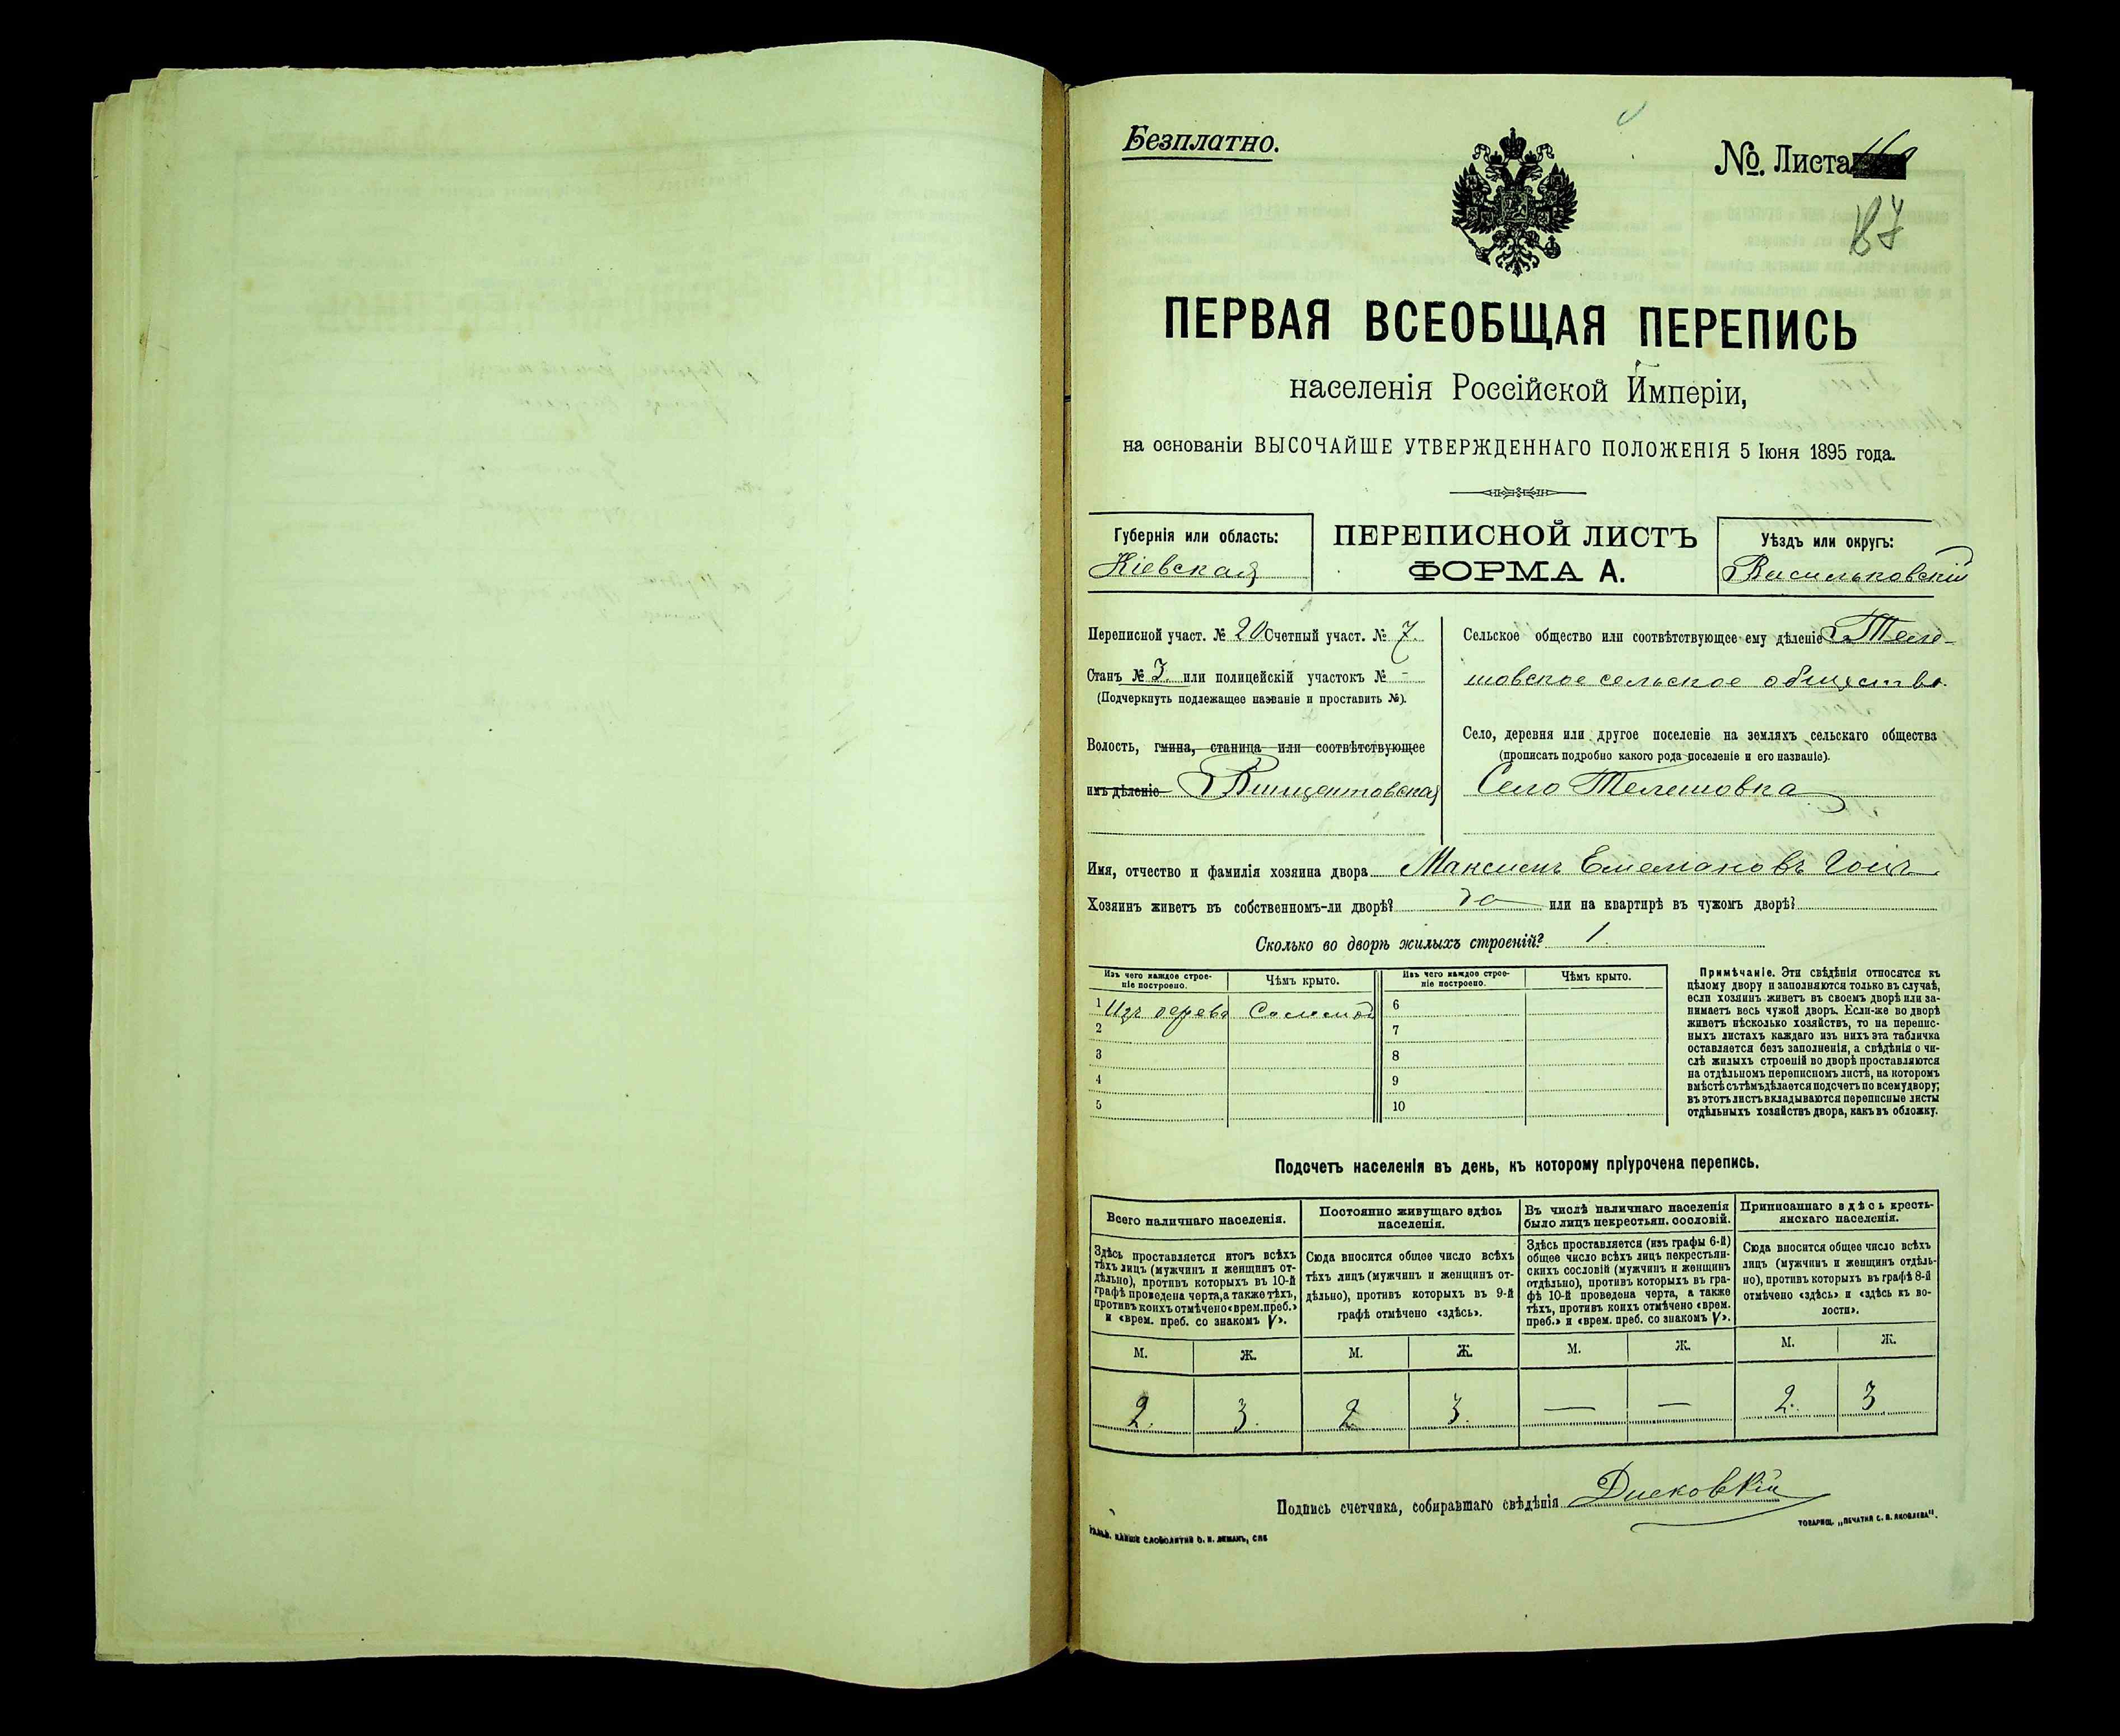 Безплатно.
№. Листа
87
ПЕРВАЯ ВСЕОБЩАЯ ПЕРЕПИСЬ
населенія Россійской Имперіи,
на основаніи ВЫСОЧАЙШЕ УТВЕРЖДЕННАГО ПОЛОЖЕНІЯ 5 Іюня 1895 года.
Губернія или область:
Кіевская
ПЕРЕПИСНОЙ ЛИСТЪ
ФОРМА А.
Уѣздъ или округъ:
Васильковскій
Переписной участ. № 20 Счетный участ. № 7.
Станъ № 3. или полицейскій участокъ № -
(Подчеркнуть подлежащее названіе и проставить №).
Волость, гмина, станица или соотвѣтствующее
имъ дѣленіе Винцентовская
Сельское общество или соотвѣтствующее ему дѣленіе Теле-
шовское сельское общество.
Село, деревня или другое поселеніе на земляхъ сельскаго общества
(прописать подробно какого рода поселеніе и его названіе).
Село Телешовка
Имя, отчество и фамилія хозяина двора Максимъ Емеліановъ
Хозяинъ живетъ въ собственномъ-ли дворѣ? да или на квартирѣ въ чужомъ дворѣ?
Сколько во дворѣ жилыхъ строеній? 1.
Изъ чего каждое строе-
ніе построено.
Чѣмъ крыто.
Изъ чего каждое строе-
ніе построено.
Чѣмъ крыто.
1 Изъ дерева Соломой 6
2 7
3 8
4 9
5 10
Примѣчаніе. Эти свѣдѣнія относятся къ
цѣлому двору и заполняются только въ случаѣ,
если хозяинъ живетъ въ своемъ дворѣ или за-
нимаетъ весь чужой дворъ. Если-же во дворѣ
живетъ нѣсколько хозяйствъ, то на перепис-
ныхъ листахъ каждаго изъ нихъ эта табличка
оставляется безъ заполненія, а свѣдѣнія о чи-
слѣ жилыхъ строеній во дворѣ проставляются
на отдѣльномъ переписномъ листѣ, на которомъ
вмѣстѣ съ тѣмъ дѣлается подсчетъ по всему двору;
въ этотъ листъ вкладываются переписные листы
отдѣльныхъ хозяйствъ двора, какъ въ обложку.
Подсчетъ населенія въ день, къ которому пріурочена перепись.
Всего наличнаго населенія.
Здѣсь проставляется итогъ всѣхъ
тѣхъ лицъ (мужчинъ и женщинъ от-
дѣльно), противъ которыхъ въ 10-й
графѣ проведена черта, а также тѣхъ,
противъ коихъ отмѣчено «врем. преб.»
и «врем. преб. со знакомъ V».
Постоянно живущаго здѣсь
населенія.
Сюда вносится общее число всѣхъ
тѣхъ лицъ (мужчинъ и женщинъ от-
дѣльно), противъ которыхъ въ 9-й
графѣ отмѣчено «здѣсь».
Въ числѣ наличнаго населенія
было лицъ некрестьян. сословій.
Здѣсь проставляется (изъ графы 6-й)
общее число всѣхъ лицъ некрестьян-
скихъ сословій (мужчинъ и женщинъ
отдѣльно), противъ которыхъ въ гра-
фѣ 10-й проведена черта, а также
тѣхъ, противъ коихъ отмѣчено «врем.
преб.» и «врем. преб. со знакомъ V».
Приписаннаго здѣсь кресть-
янскаго населенія.
Сюда вносится общее число всѣхъ
лицъ (мужчинъ и женщинъ отдѣль-
но), противъ которыхъ въ графѣ 8-й
отмѣчено «здѣсь» и «здѣсь къ во-
лости».
М. Ж. М. Ж. М. Ж. М. Ж.
2. 3. 2. 3. — — 2. 3
Подпись счетчика, собиравшаго свѣдѣнія
ТОВАРИЩ. „ПЕЧАТНЯ С. П. ЯКОВЛЕВА".
СЛОВОЛИТНИ О. И. ЛЕМАНЪ, СПБ